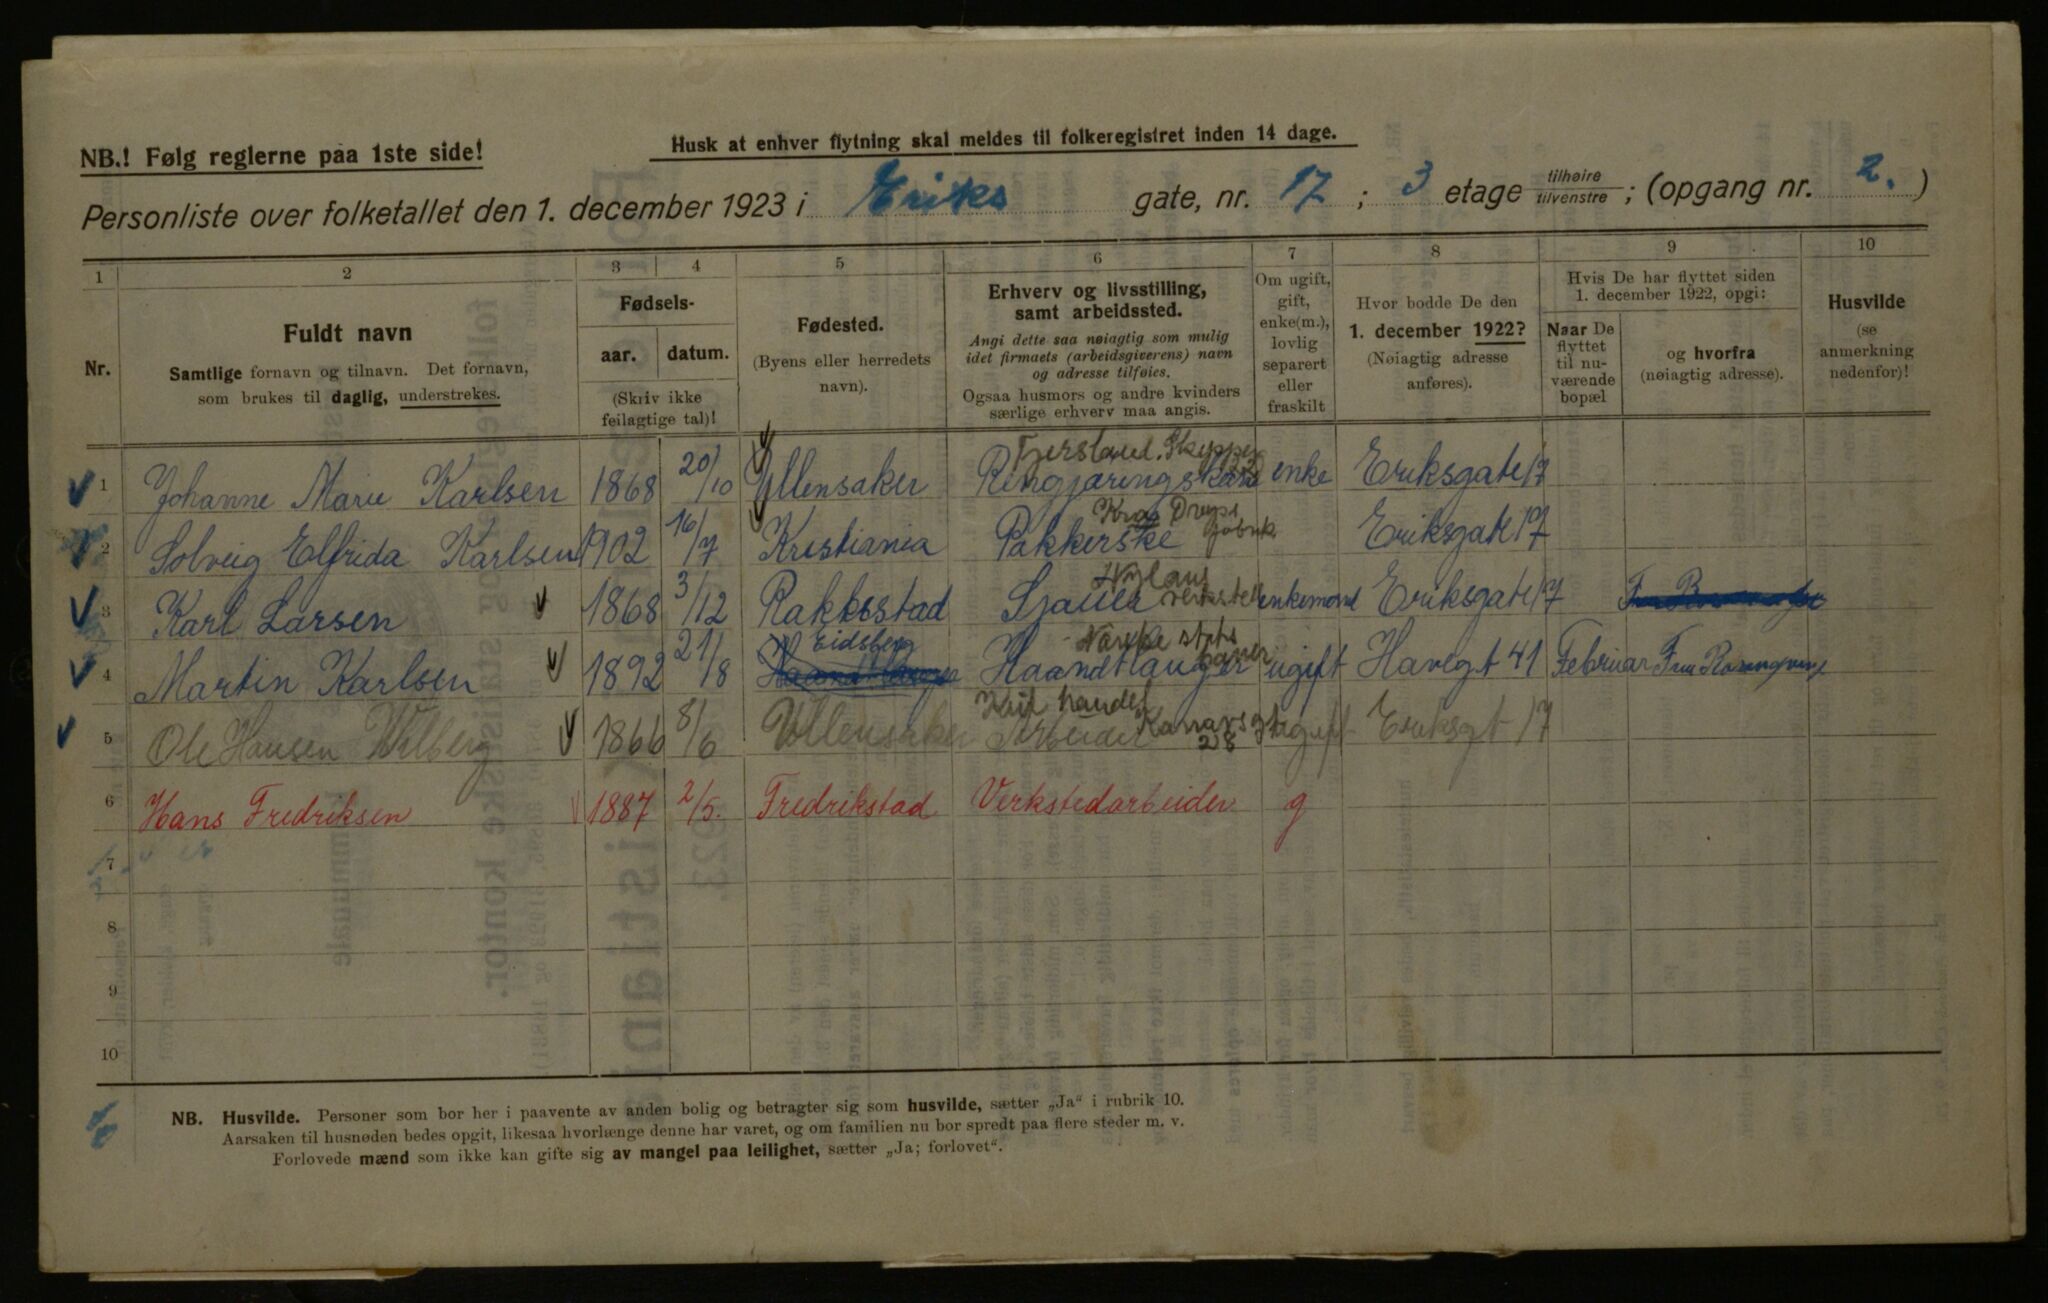 NB.! Følg reglerne paa 1ste side!
Husk at enhver flytning skal meldes til folkeregistret inden 14 dage.
Personliste over folketallet den 1. december 1923 i Eriks gate, nr. 17 ; 3 etage tilhøire tilvenstre ; (opgang nr. 2. )
1 2 3 4 5 6 7 8 9 10
Nr.
Fuldt navn
Samtlige fornavn og tilnavn. Det fornavn,
som brukes til daglig, understrekes.
Fødsels-
aar. datum.
(Skriv ikke
feilagtige tal)!
Fødested.
(Byens eller herredets
navn).
Erhverv og livsstilling,
samt arbeidssted.
Angi dette saa nøiagtig som mulig
idet firmaets (arbeidsgiverens) navn
og adresse tilføies.
Ogsaa husmors og andre kvinders
særlige erhverv maa angis.
Om ugift,
gift,
enke(m.),
lovlig
separert
eller
fraskilt
Hvor bodde De den
1. december 1922?
(Nøiagtig adresse
anføres).
Hvis De har flyttet siden
1. december 1922, opgi:
Naar De
flyttet
til nu-
værende
bopæl
og hvorfra
(nøiagtig adresse).
Husvilde
(se
anmerkning
nedenfor)!
1 Johanne Marie Karlsen 1868 20/10 Ullensaker Rengjøringskone enke Eriksgate 17
2 Solveig Elfrida Karlsen 1902 16/7 Kristiania Pakkerske Eriksgate 17
3 Karl Larsen 1868 3/12 Rakkestad Sjauer Nylans verksted enkemand Eriksgate 17
4 Martin Karlsen 1892 21/8 Eidsberg Haandtlanger ugift Havegt 41 Februar Fru
5 Ole Hansen Wilberg 1866 8/6 Ullensaker Arbeider 28 ugift Eriksgt 17
6 Hans Fredriksen 1887 2/5. Fredrikstad Verkstedarbeider g
7
8
9
10
NB. Husvilde. Personer som bor her i paavente av anden bolig og betragter sig som husvilde, sætter „Ja“ i rubrik 10.
Aarsaken til husnøden bedes opgit, likesaa hvorlænge denne har varet, og om familien nu bor spredt paa flere steder m. v.
Forlovede mænd som ikke kan gifte sig av mangel paa leilighet, sætter „Ja; forlovet“.